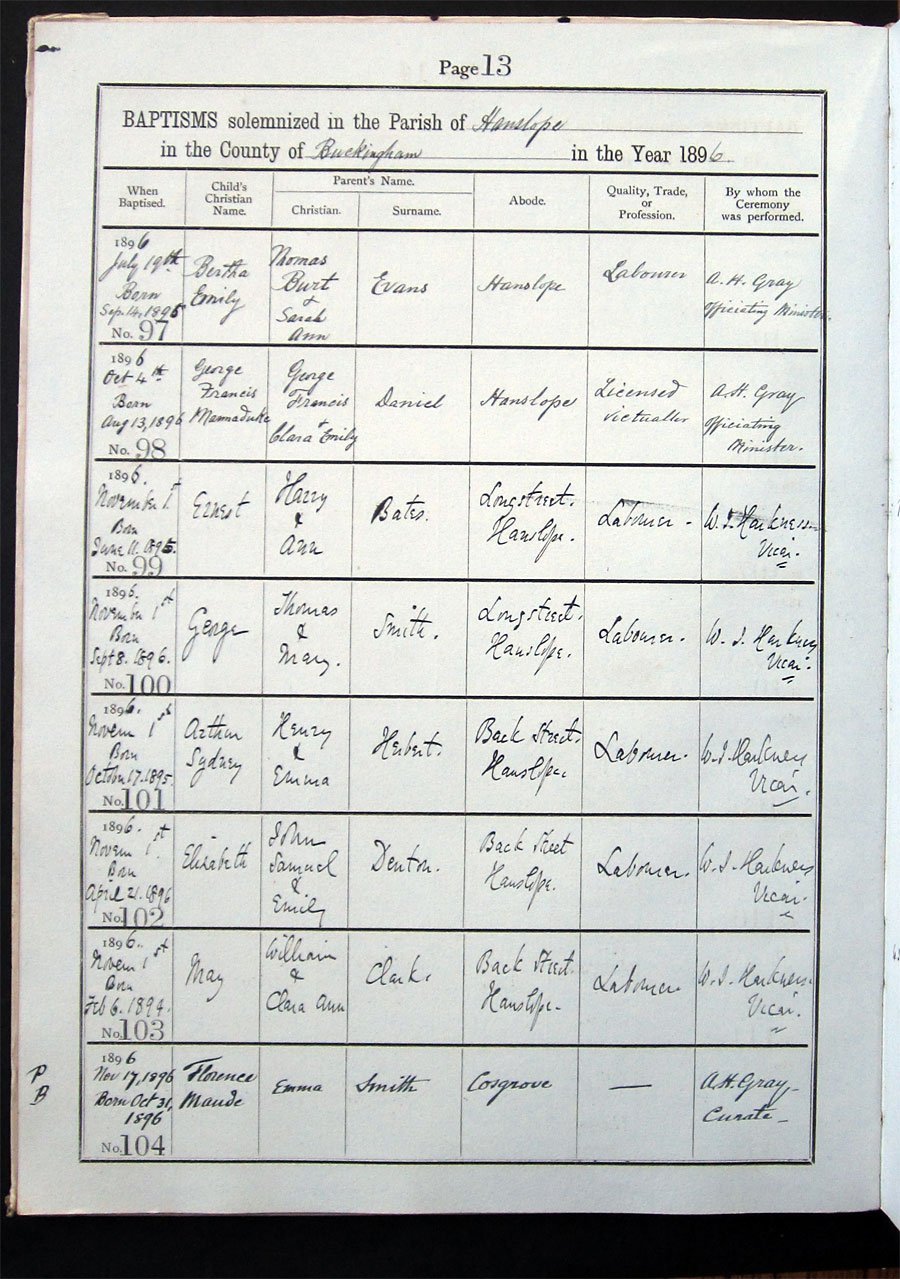 Page 13
BAPTISMS solemnized in the Parish of Hanslope
in the County of Buckingham in the Year 1896.
When Baptised.
Child's Christian Name.
Parent's Name.
Christian.
Surname.
Abode.
Quality, Trade, or Profession.
By whom the Ceremony was performed.
1896
July 19th
Born
Sep. 14, 1895
No. 97
Bertha
Emily
Thomas
Burt
&
Sarah
Ann
Evans
Hanslope
Labourer
A. H. Gray
Officiating Minister.
1896
Oct 4th
Born
Aug 13, 1896
No. 98
George
Francis
Marmaduke
George
Francis
&
Clara Emily
Daniel
Hanslope
Licensed
Victualler
A. H. Gray
Officiating
Minister.
1896.
November 1st
Born
June 11. 1895.
No. 99
Ernest
Harry
&
Ann
Bates.
Longstreet.
Hanslope.
Labourer -
W. J. Harkness
Vicar.
1896.
November 1st
Born
Sept 8. 1896.
No. 100
George
Thomas
&
Mary.
Smith.
Longstreet.
Hanslope.
Labourer.
W. J. Harkness
Vicar.
1896.
Novem 1st
Born
October 17. 1895.
No. 101
Arthur
Sydney
Henry
&
Emma
Herbert.
Back Street.
Hanslope.
Labourer.
W. J. Harkness
Vicar.
1896.
Novem 1st
Born
April 21. 1896
No. 102
Elizabeth
John
Samuel
&
Emily
Denton.
Back Street
Hanslope.
Labourer.
W. J. Harkness
Vicar.
1896.
Novem 1st
Born
Feb 6. 1894.
No. 103
May
William
&
Clara Ann
Clark.
Back Street
Hanslope.
Labourer.
W. J. Harkness
Vicar.
P
B
1896
Nov 17, 1896
Born Oct 31,
1896
No. 104
Florence
Maude
Emma
Smith
Cosgrove
—
A. H. Gray
Curate